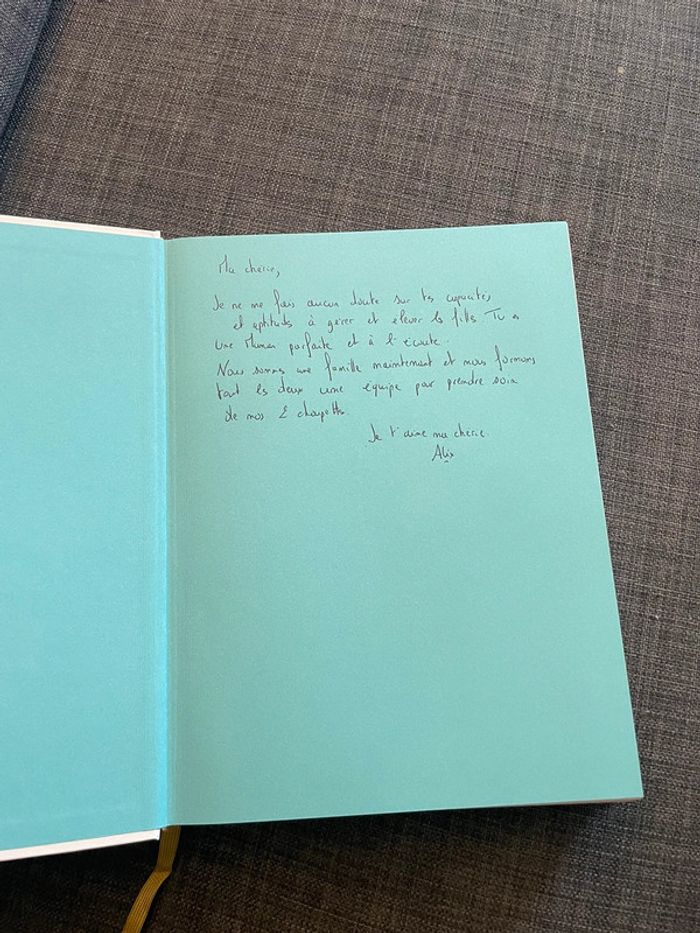 Ma chérie,
Je ne me fais aucun doute sur tes capacités,
et aptitudes à gérer et élever les filles. Tu es
une Maman parfaite et à l'écoute.
Nous sommes une famille maintenant et nous formons
tout les deux une équipe par prendre soin
de nos 2 choupettes.
Je t'aime ma chérie.
Alix